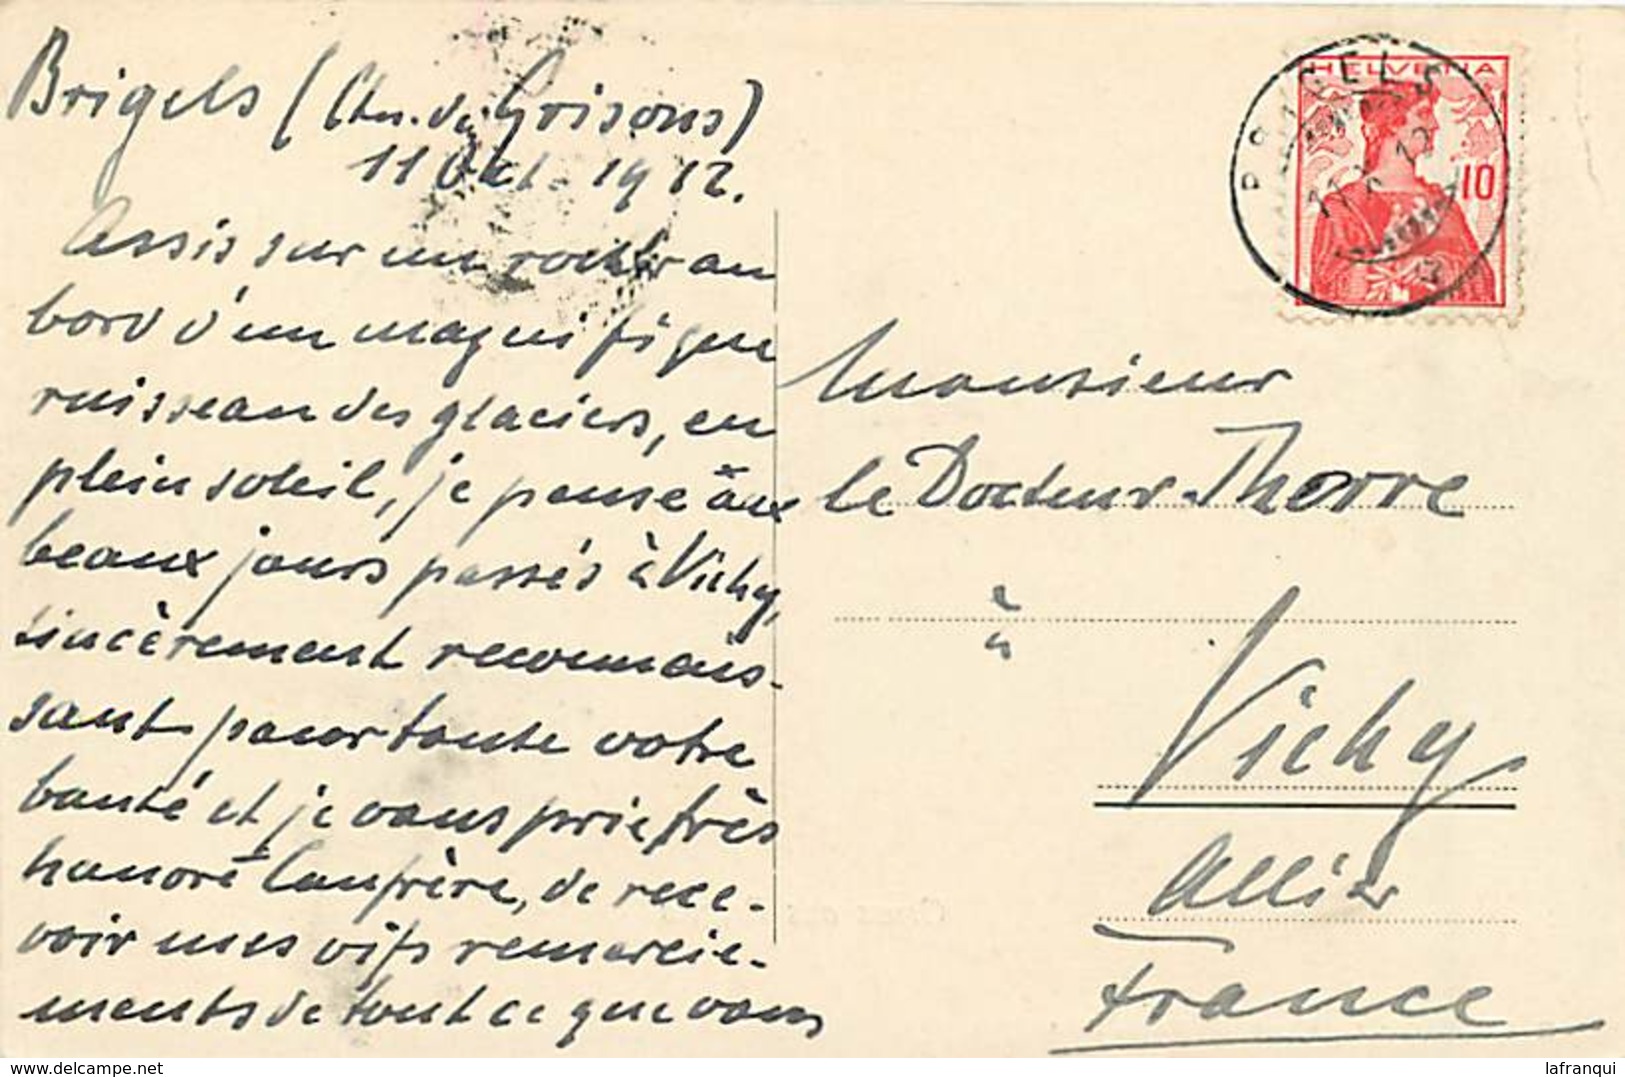 Brigels (Ctn. des Grisons)
11 Oct. 1912.
Assis sur un rocher au
bord d'un magnifique
ruisseau des glaciers, en
plein soleil, je pense aux
beaux jours passés à Vichy,
sincèrement reconnais-
sant pour toute votre
bonté et je vous prie, très
honoré Confrère, de rece-
voir mes vifs remercie-
ments de tout ce que vous
HELVETIA
10
BRIGELS
Monsieur
le Docteur Thorre
à
Vichy
Allier
France
delcampe.net
lafranqui